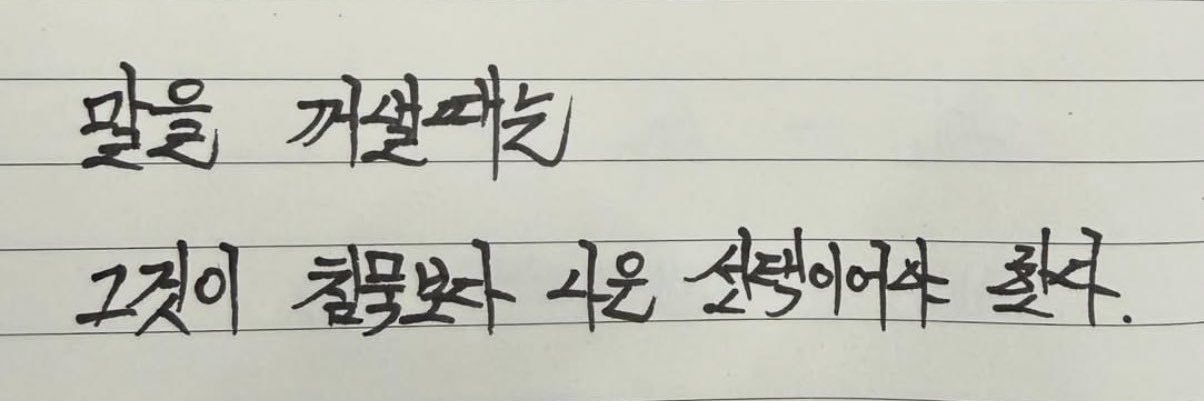 말을 꺼낼때는
그것이 침묵보다 나은 선택이어야 한다.